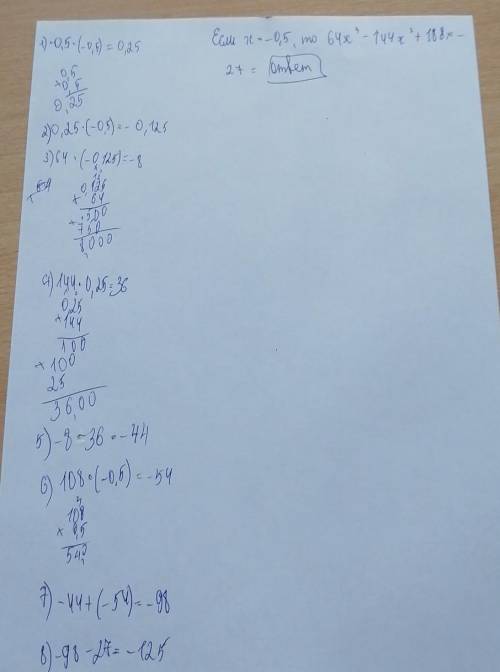 1) -0,5 · (-0,5) = 0,25
0,5
× 0,5
0,25
2) 0,25 · (-0,5) = - 0,125
3) 64 · (-0,125) = -8
0,125
× 64
500
+ 750
8,000
4) 144 · 0,25 = 36
0,25
× 144
100
+ 100
25
36,00
5) -8 - 36 = -44
6) 108 · (-0,5) = -54
108
× 0,5
54,0
7) -44 + (-54) = -98
8) -98 - 27 = -125
Если x = -0,5, то 64x³ - 144x² + 108x -
27 = ответ